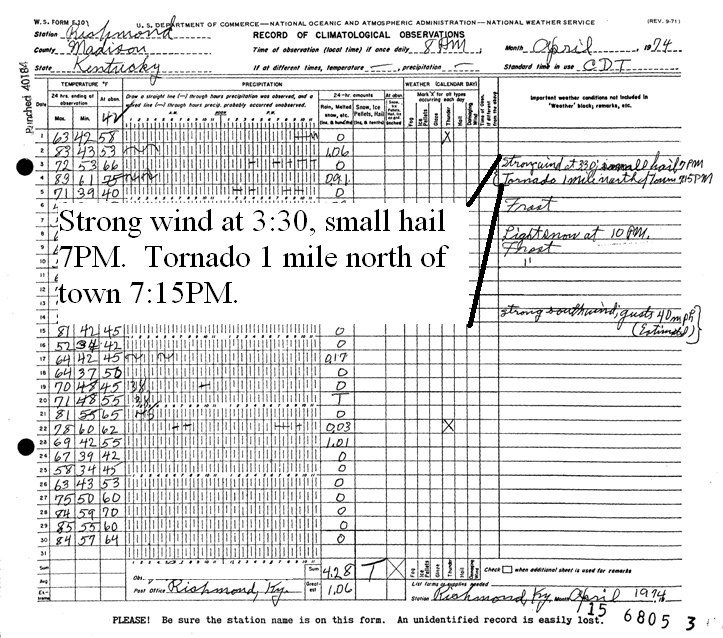 W. S. FORM E-10 U. S. DEPARTMENT OF COMMERCE—NATIONAL OCEANIC AND ATMOSPHERIC ADMINISTRATION—NATIONAL WEATHER SERVICE (REV. 9-71)
Station Richmond RECORD OF CLIMATOLOGICAL OBSERVATIONS
County Madison Time of observation (local time) if once daily 8 AM, Month April, 1974
State Kentucky If at different times, temperature —; precipitation — Standard time in use CDT
Punched 40184
TEMPERATURE °F PRECIPITATION WEATHER (CALENDAR DAY)
Date 24 hrs. ending at observation At obsn. Draw a straight line (—) through hours precipitation was observed, and a waved line through hours precip. probably occurred unobserved. 24-hr. amounts At obsn. Mark 'X' for all types occurring each day Important weather conditions not included in "Weather" block; remarks, etc.
Max. Min. A.M. NOON P.M. Rain, Melted snow, etc. Snow, Ice Pellets, Hail Fog Ice Pellets Glaze Thunder Hail Damaging Wind
1 63 42 58 0 X
2 83 43 53 1.06
3 72 53 66 0 Strong wind at 330; small hail 7 PM
4 83 61 Tornado 1 mile north of Town 715 PM
5 71 39 40 0
6 Frost
Strong wind at 3:30, small hail
7PM. Tornado 1 mile north of
town 7:15PM.
8 Light snow at 10 PM.
9 Frost
10 "
strong south wind; gusts 40 mph
(Estimated)
15 81 42 45 0
16 52 34 42 0
17 64 42 45 0.17
18 64 37 50 0
19 70 48 45 0
20 71 48 55 T
21 81 55 65 0
22 78 60 62 0.03 X
23 69 42 55 1.01
24 67 39 42 0
25 58 34 45 0
26 63 43 53 0
27 75 50 60 0
28 84 59 70 0
29 85 55 60 0
30 84 57 64 0
31
Sum Sum 4.28 T X Fog Ice Pellets Glaze Thunder Hail Damaging Wind Check when additional sheet is used for remarks
Avg Obs. Greatest 1.06 List forms or supplies needed
Post Office Richmond, Ky. Station Richmond, Ky Month April 1974
15 6805 3
PLEASE! Be sure the station name is on this form. An unidentified record is easily lost.